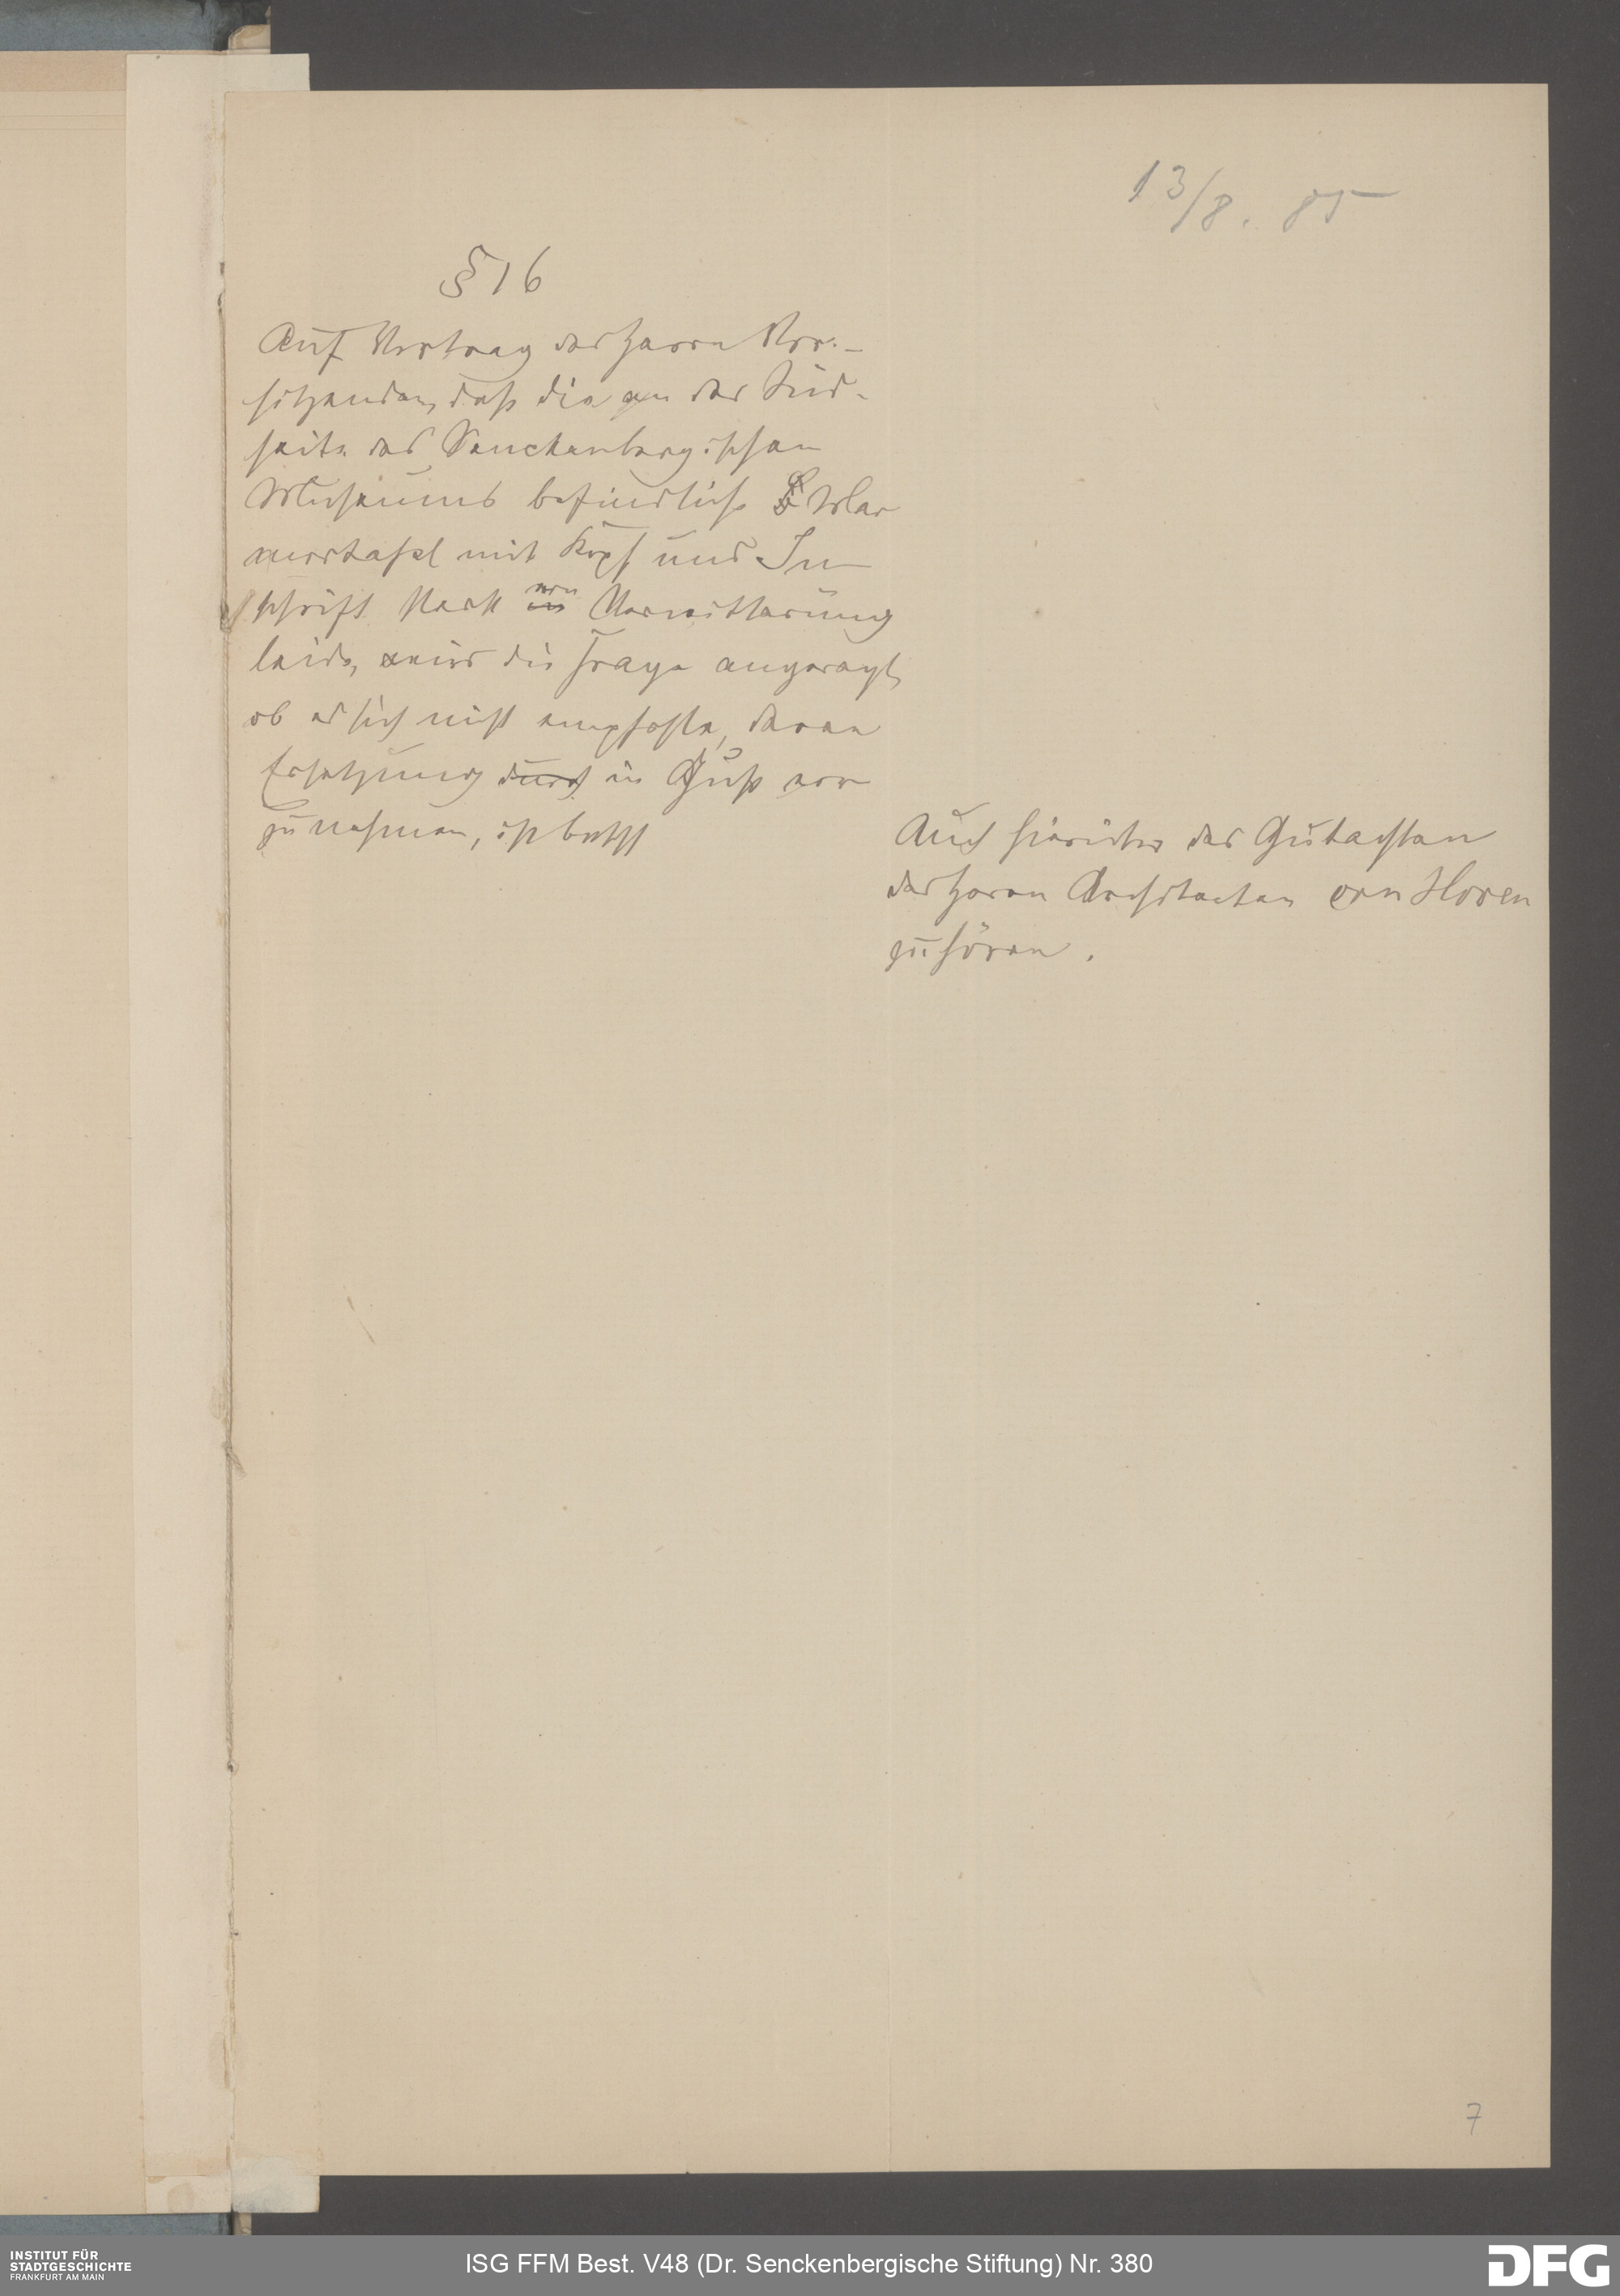 13/8. 85
§ 16
Auf Vortrag des Herrn Vor-
sitzenden, daß die an der Süd-
seite des Senckenbergischen
Museums befindliche Mar
mortafel mit Kopf und In
schrift stark von Verwitterung
leide, wird die Frage angeregt,
ob es sich nicht empfehle, deren
Ersetzung durch in Guß vor
zunehmen, ist beschl
Auch hierüber das Gutachten
des Herrn Architecten von Hoven
zu hören.
7
INSTITUT FÜR
STADTGESCHICHTE
FRANKFURT AM MAIN
ISG FFM Best. V48 (Dr. Senckenbergische Stiftung) Nr. 380
DFG